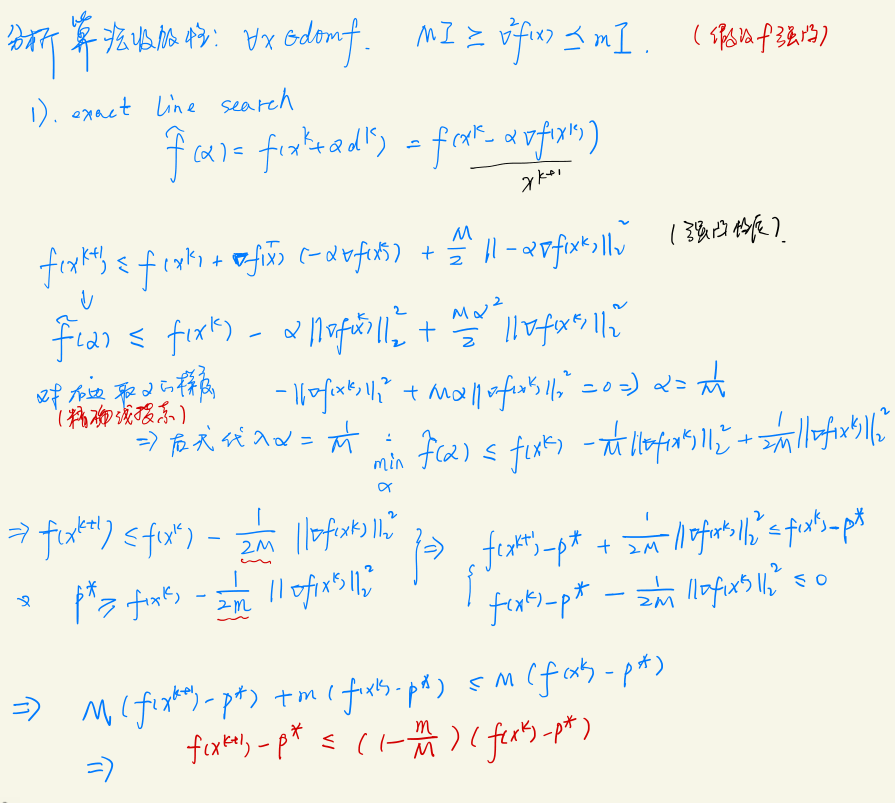 分析算法收敛性: ∀x∈domf. MI ≥ ∇²f(x) ⪯ mI. (假设f强凸)
1). exact line search
f̂(α) = f(x^k+αd^k) = f(x^k - α∇f(x^k))
x^{k+1}
f(x^{k+1}) ≤ f(x^k) + ∇f(x)^T (-α∇f(x^k)) + M/2 ||-α∇f(x^k)||₂² (强凸性质).
↓
f̂(α) ≤ f(x^k) - α||∇f(x^k)||₂² + Mα²/2 ||∇f(x^k)||₂²
对右边取α的梯度 -||∇f(x^k)||₂² + Mα||∇f(x^k)||₂² = 0 ⇒ α = 1/M
(精确线搜索)
⇒ 右式代入α = 1/M : min_α f̂(α) ≤ f(x^k) - 1/M ||∇f(x^k)||₂² + 1/2M ||∇f(x^k)||₂²
⇒ f(x^{k+1}) ≤ f(x^k) - 1/2M ||∇f(x^k)||₂² } ⇒ { f(x^{k+1}) - p* + 1/2M ||∇f(x^k)||₂² ≤ f(x^k) - p*
又 p* ≥ f(x^k) - 1/2m ||∇f(x^k)||₂² f(x^k) - p* - 1/2M ||∇f(x^k)||₂² ≤ 0
⇒ M(f(x^{k+1}) - p*) + m(f(x^k) - p*) ≤ M(f(x^k) - p*)
⇒ f(x^{k+1}) - p* ≤ (1 - m/M)(f(x^k) - p*)